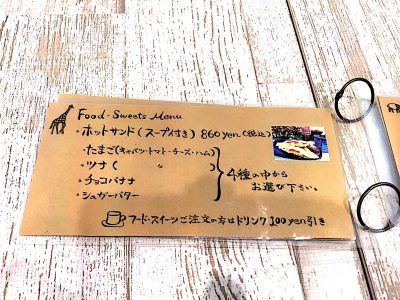 Food・Sweets Menu
・ホットサンド(スープ付き) 860yen(税込)
・たまご(キャベツ・トマト・チーズ・ハム)
・ツナ( 〃 )
・チョコバナナ
・シュガーバター
4種の中から
お選び下さい。
フード・スイーツご注文の方はドリンク100yen引き